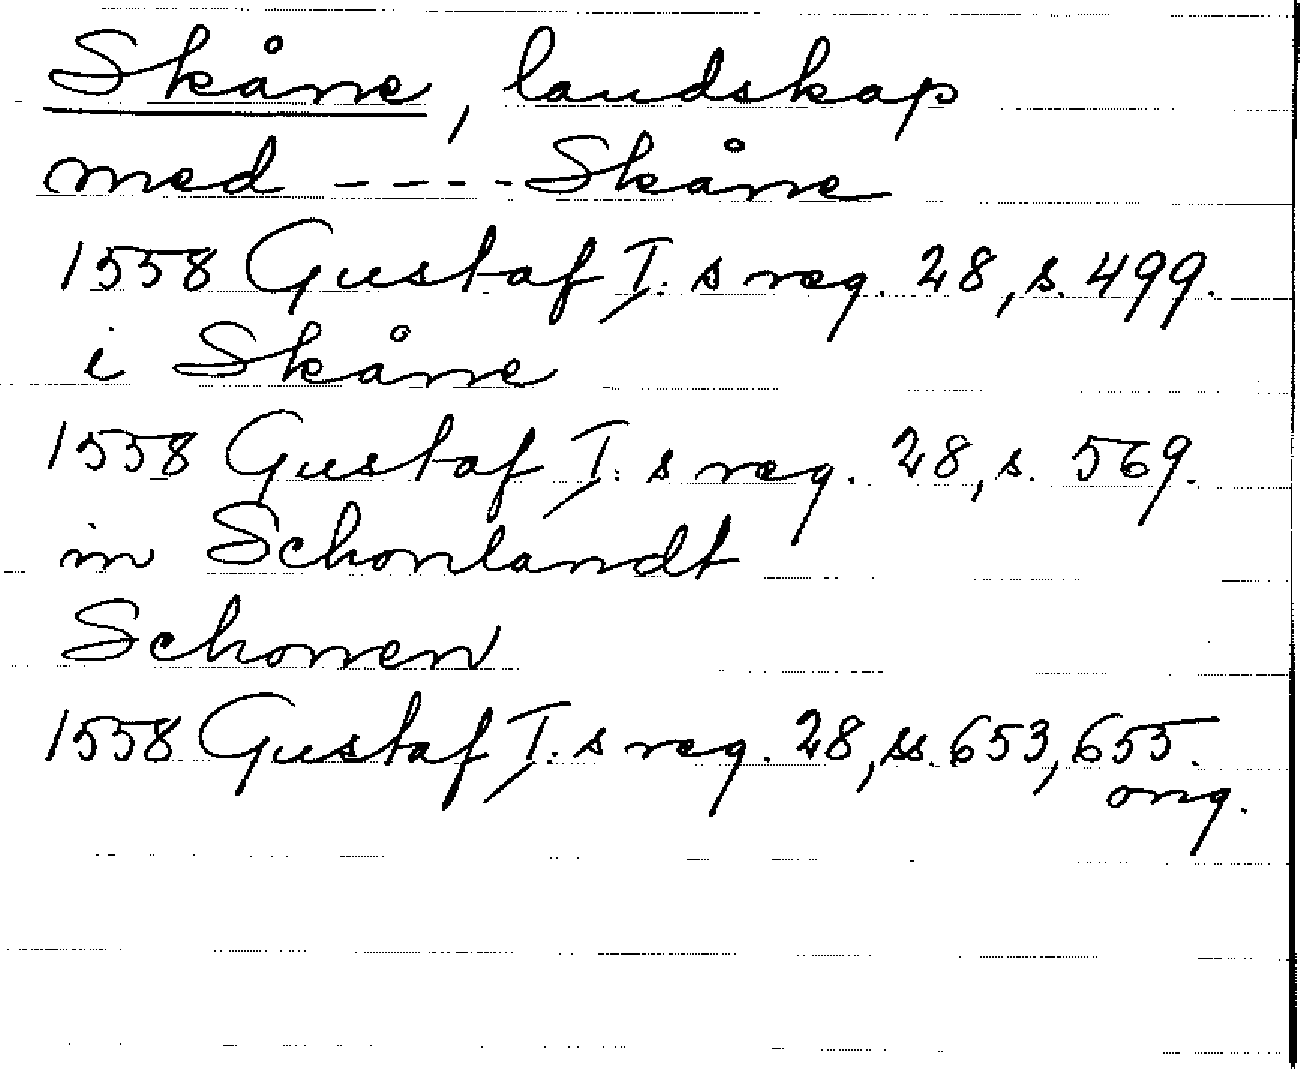 Skåne, landskap
med - - - - Skåne
1558 Gustaf I: s reg. 28, s. 499.
i Skåne
1558 Gustaf I: s reg. 28, s. 569.
in Schonlandt
Schonen
1558 Gustaf I: s reg. 28, ss. 653, 655.
orig.